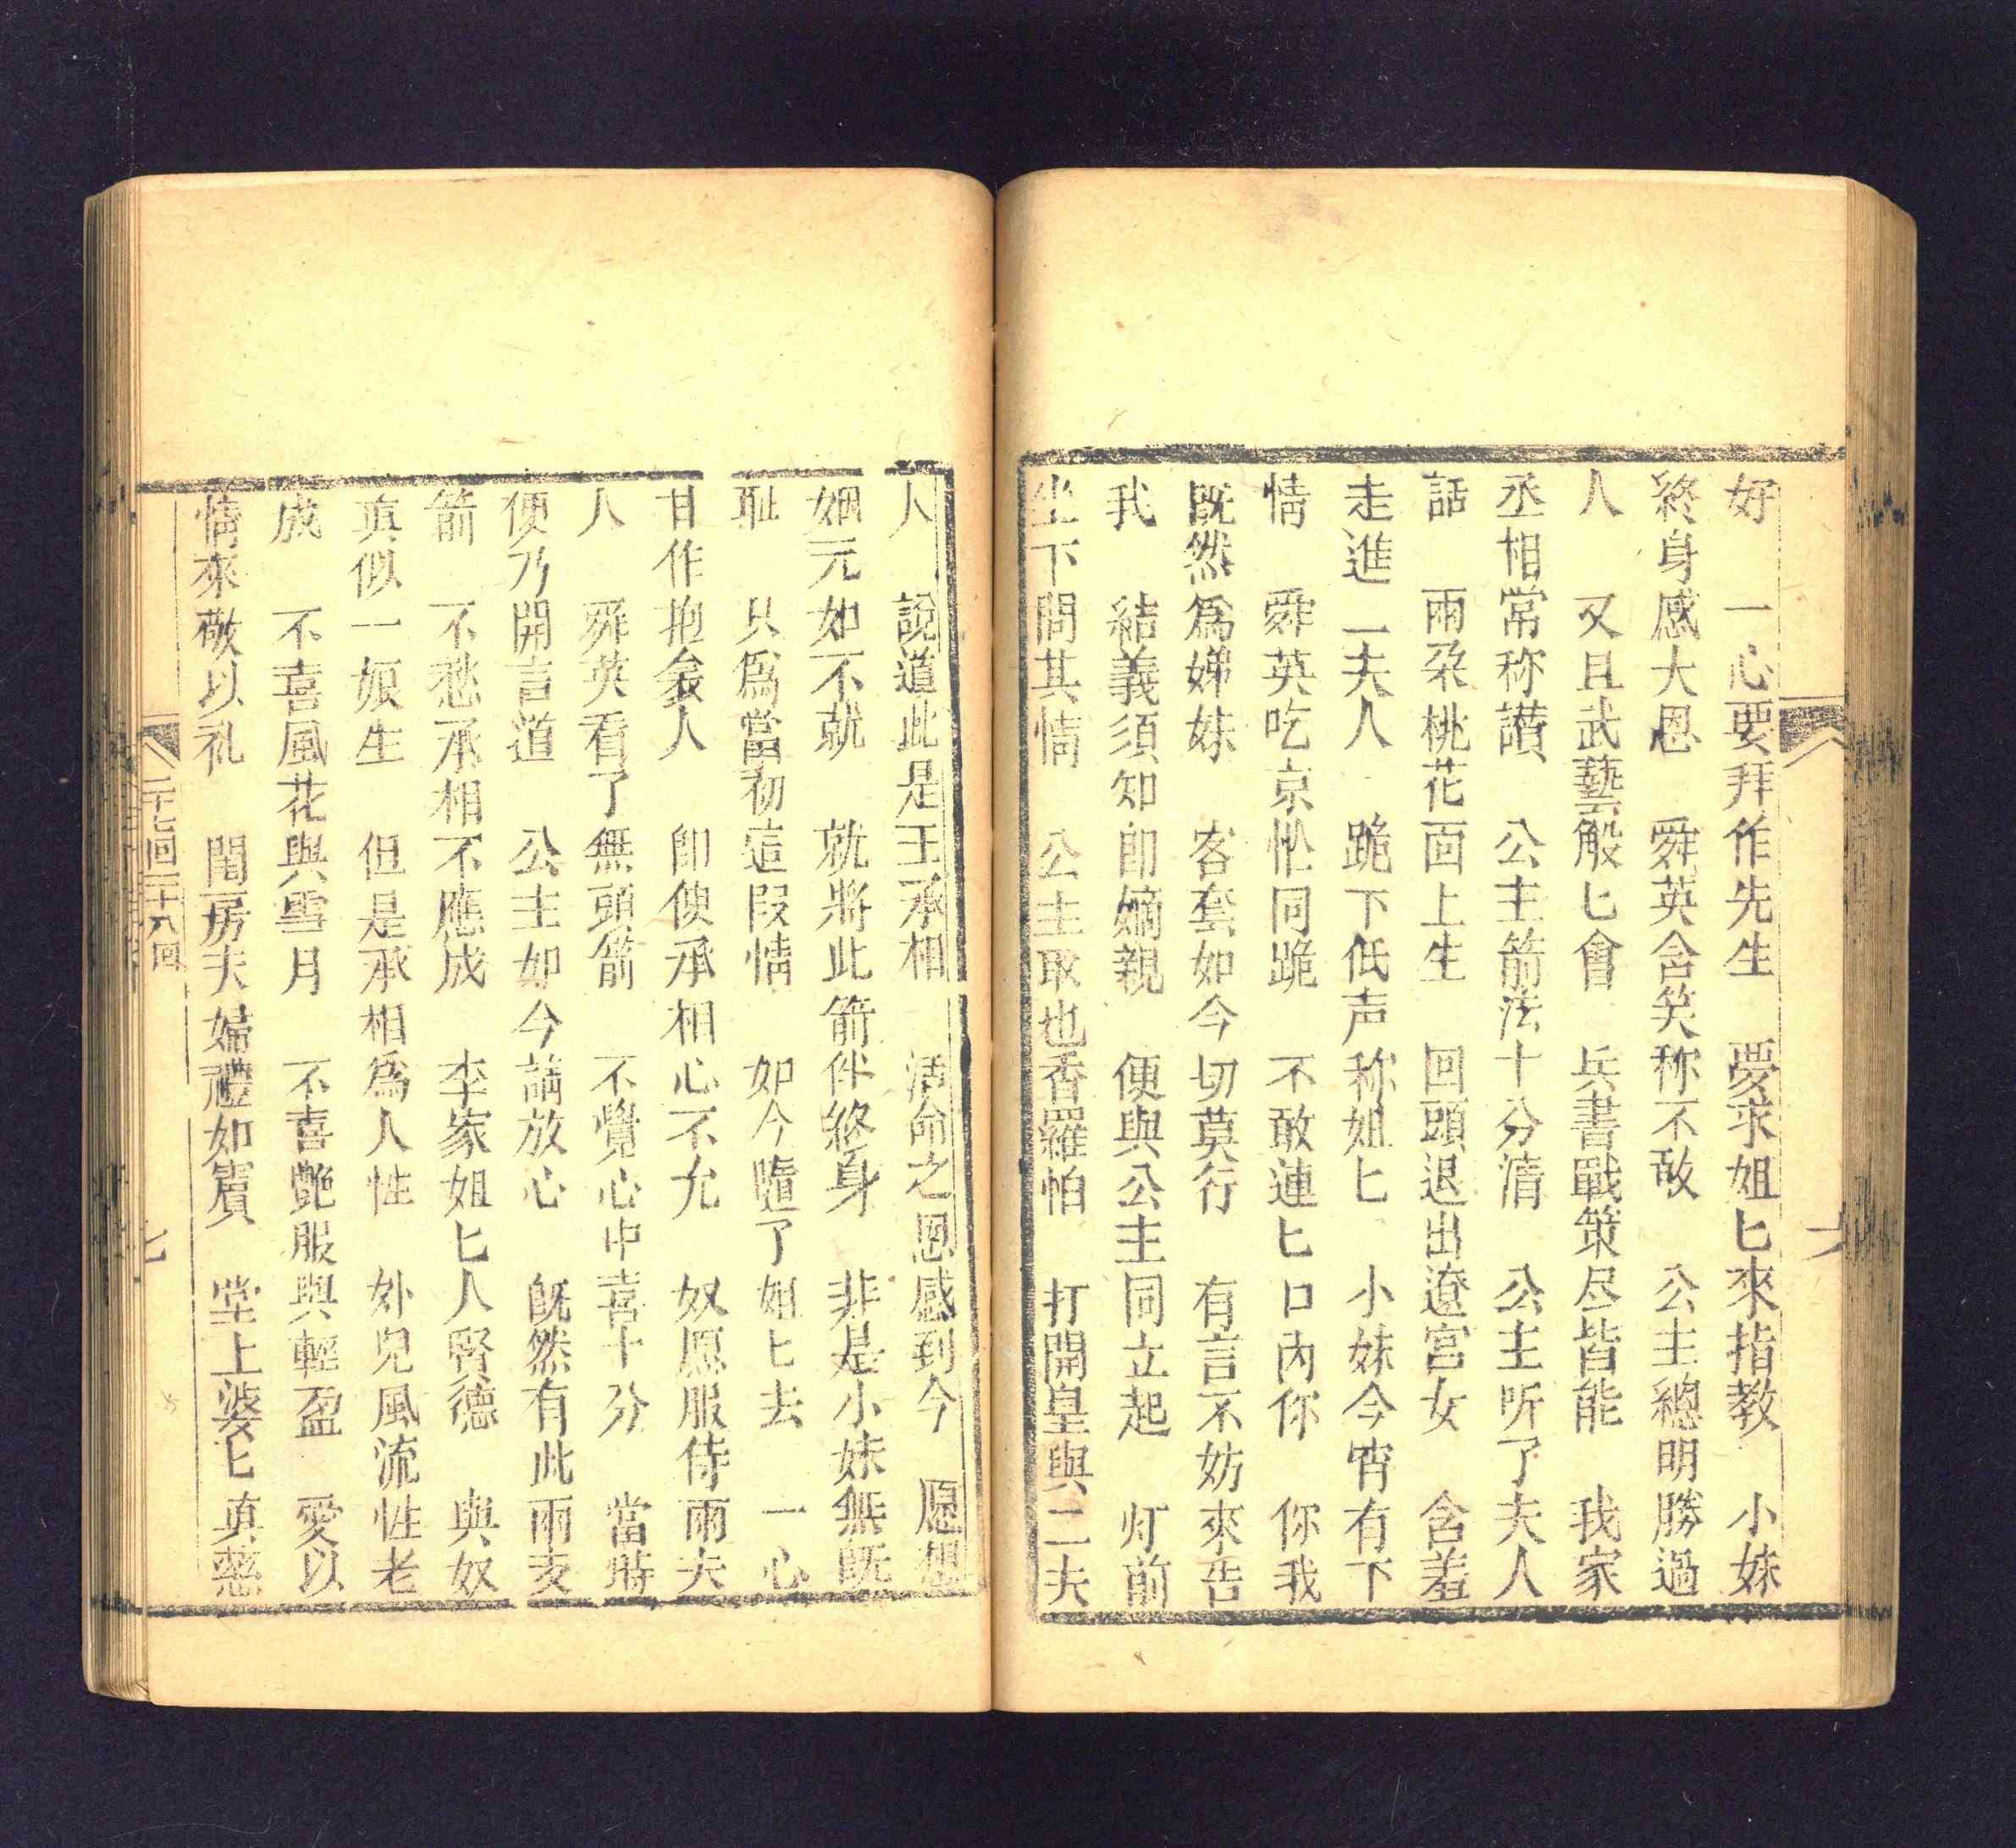 好　一心要拜作先生　夢求姐匕來指教　小妹
終身感大恩　舜英含笑称不敢　公主總明勝過
人　又且武藝般匕會　兵書戰策尽皆能　我家
丞相常称讃　公主箭法十分清　公主听了夫人
話　兩朶桃花面上生　回頭退出遼宮女　含羞
走進一夫人　跪下低声称姐匕　小妹今宵有下
情　舜英吃京忙同跪　不敢連匕口內你　你我
既然爲娣妹　客套如今切莫行　有言不妨來告
我　結義須知卽嫡親　便與公主同立起　灯前
坐下問其情　公主取也香羅怕　打開皇與二夫
人　說道此是王承相　活命之恩感到今　愿想
姻元如不就　就將此箭伴終身　非是小妹無既
耻　只爲當初這叚情　如今隨了姐匕去　一心
甘作抱衾人　卽使承相心不允　奴愿服侍兩夫
人　舜英看了無頭箭　不覺心中喜十分　當時
便乃開言道　公主如今請放心　既然有此兩支
箭　不愁承相不應成　李家姐匕人賢德　與奴
真似一娘生　但是承相爲人性　外皃風流性老
成　不喜風花與雪月　不喜艷服與輕盈　愛以
情來敬以礼　閨房夫婦禮如賓　堂上婆匕真慈
二十七回二十八回
七